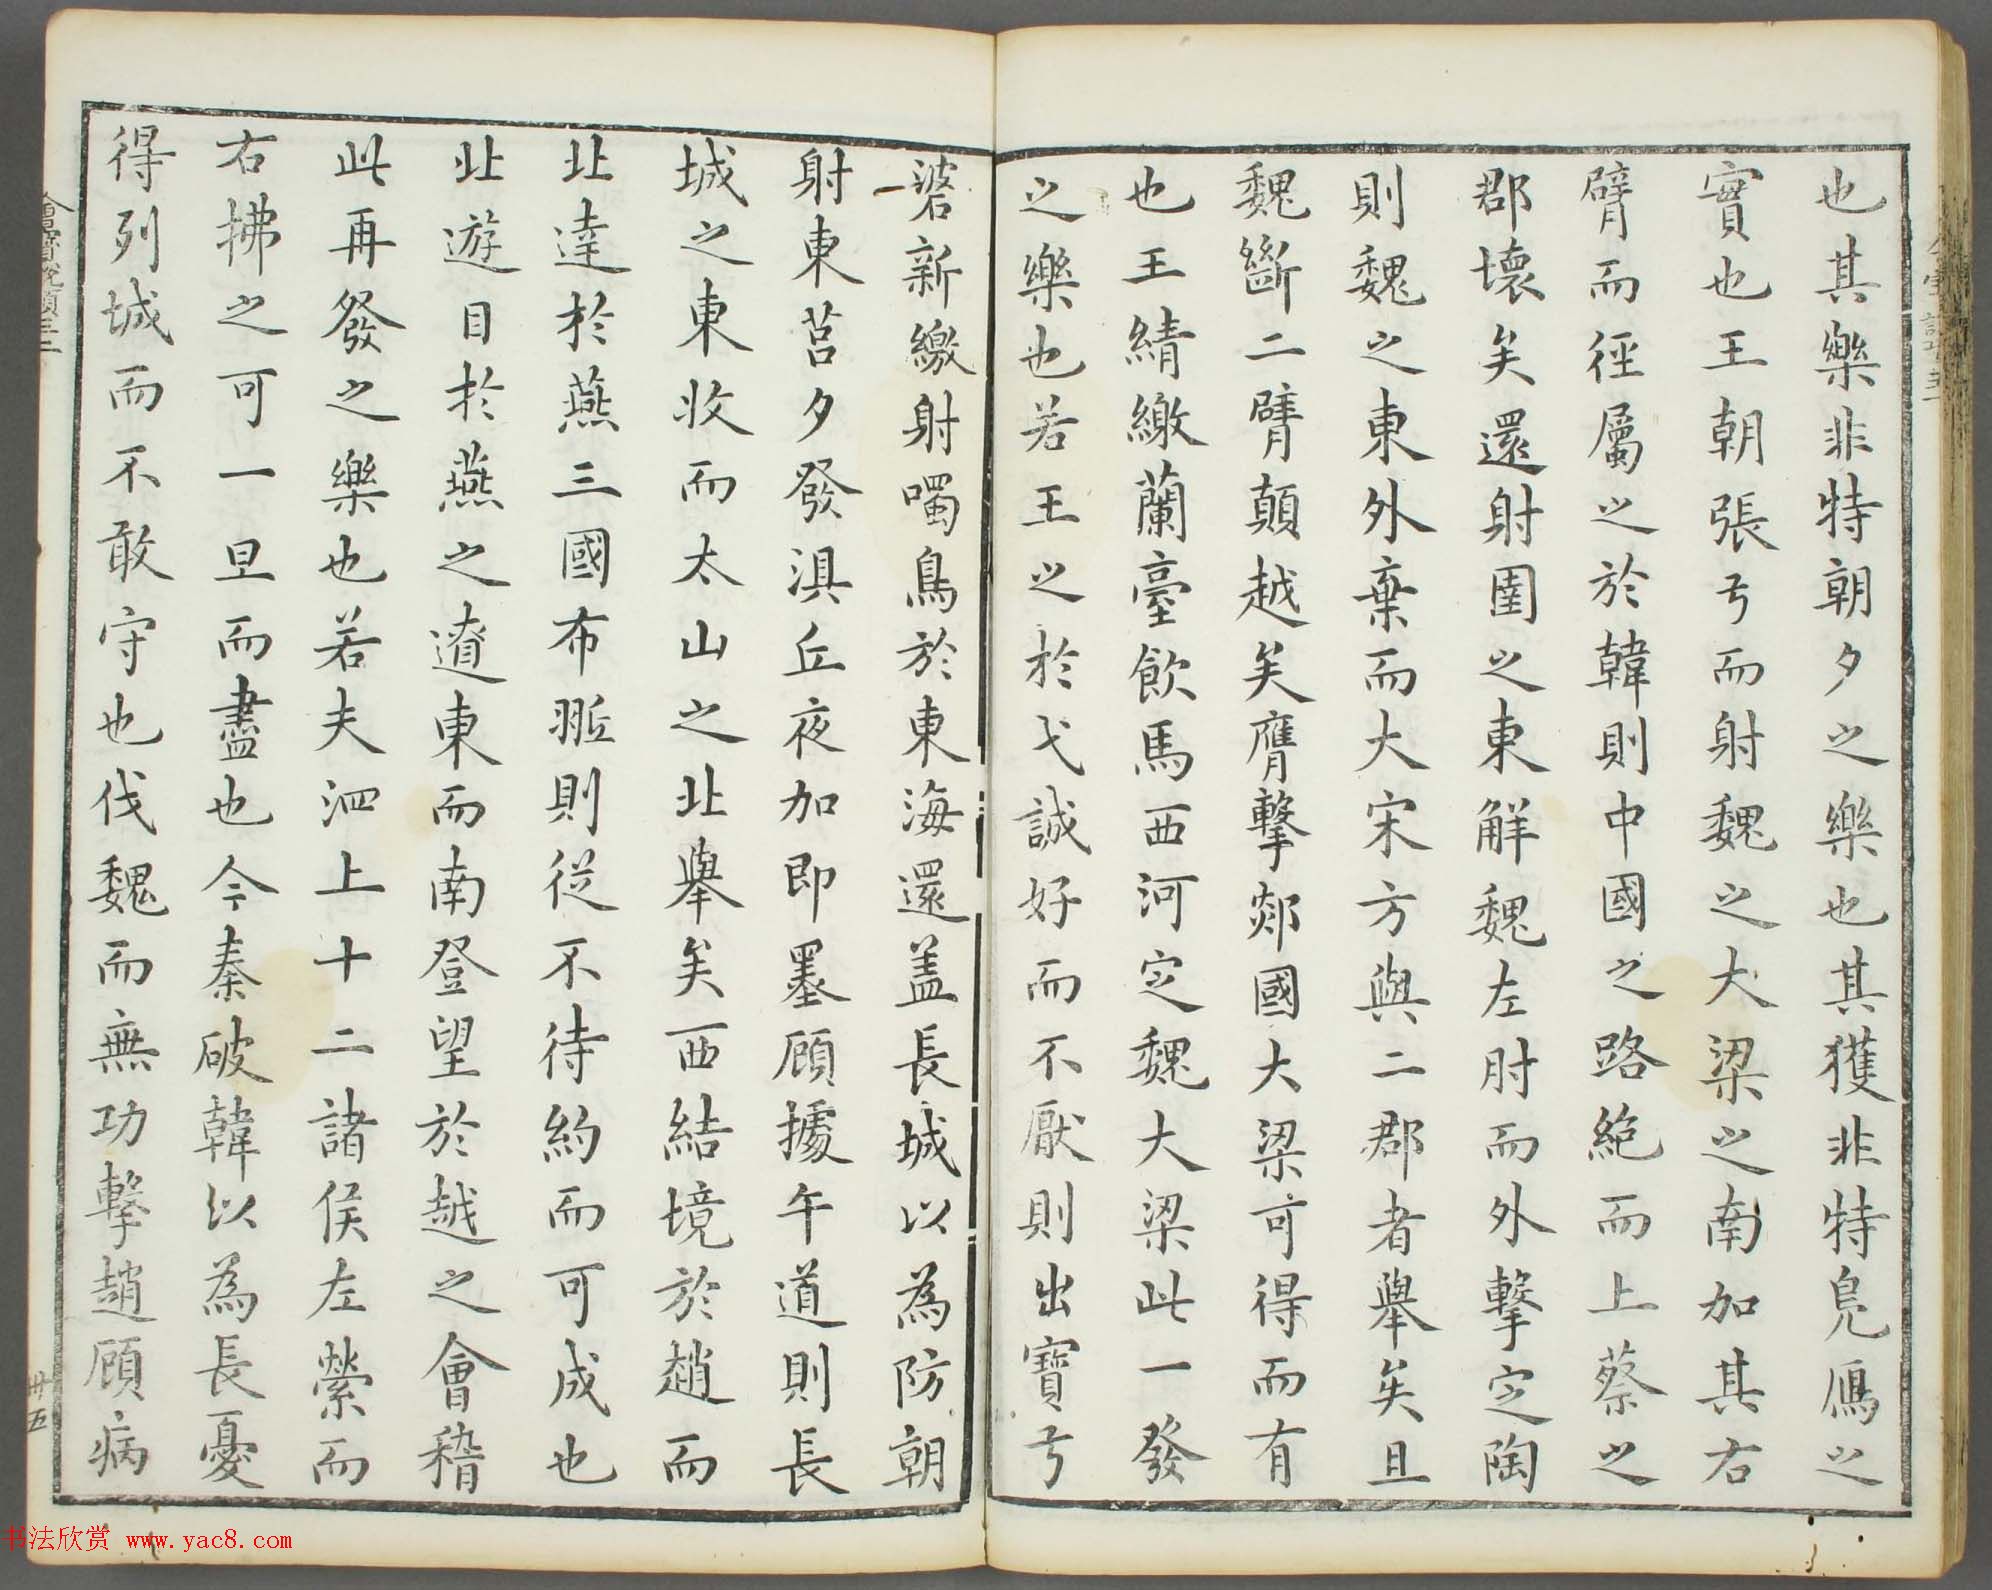 也其樂非特朝夕之樂也其獲非特鳧鴈之
實也王朝張弓而射魏之大梁之南加其右
臂而徑屬之於韓則中國之路絶而上蔡之
郡壞矣還射圉之東解魏左肘而外擊定陶
則魏之東外棄而大宋方與二郡者舉矣且
魏斷二臂顛越矣膺擊郯國大梁可得而有
也王績繳蘭臺飲馬西河定魏大梁此一發
之樂也若王之於弋誠好而不厭則出寶弓
碆新繳射噣鳥於東海還盖長城以為防朝
射東莒夕發浿丘夜加即墨顧據午道則長
城之東收而太山之北舉矣西結境於趙而
北達於燕三國布䎗則從不待約而可成也
北遊目於燕之遼東而南登望於越之會稽
此再發之樂也若夫泗上十二諸侯左縈而
右拂之可一旦而盡也今秦破韓以為長憂
得列城而不敢守也伐魏而無功擊趙顧病
卅五
书法欣赏 www.yac8.com